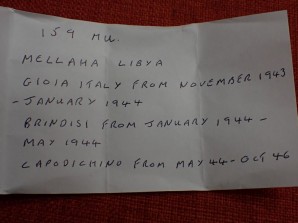 159 MU.
MELLAHA LIBYA
GIOIA ITALY FROM NOVEMBER 1943
- JANUARY 1944
BRINDISI FROM JANUARY 1944 -
MAY 1944
CAPODICHINO FROM MAY 44 - OCT 46